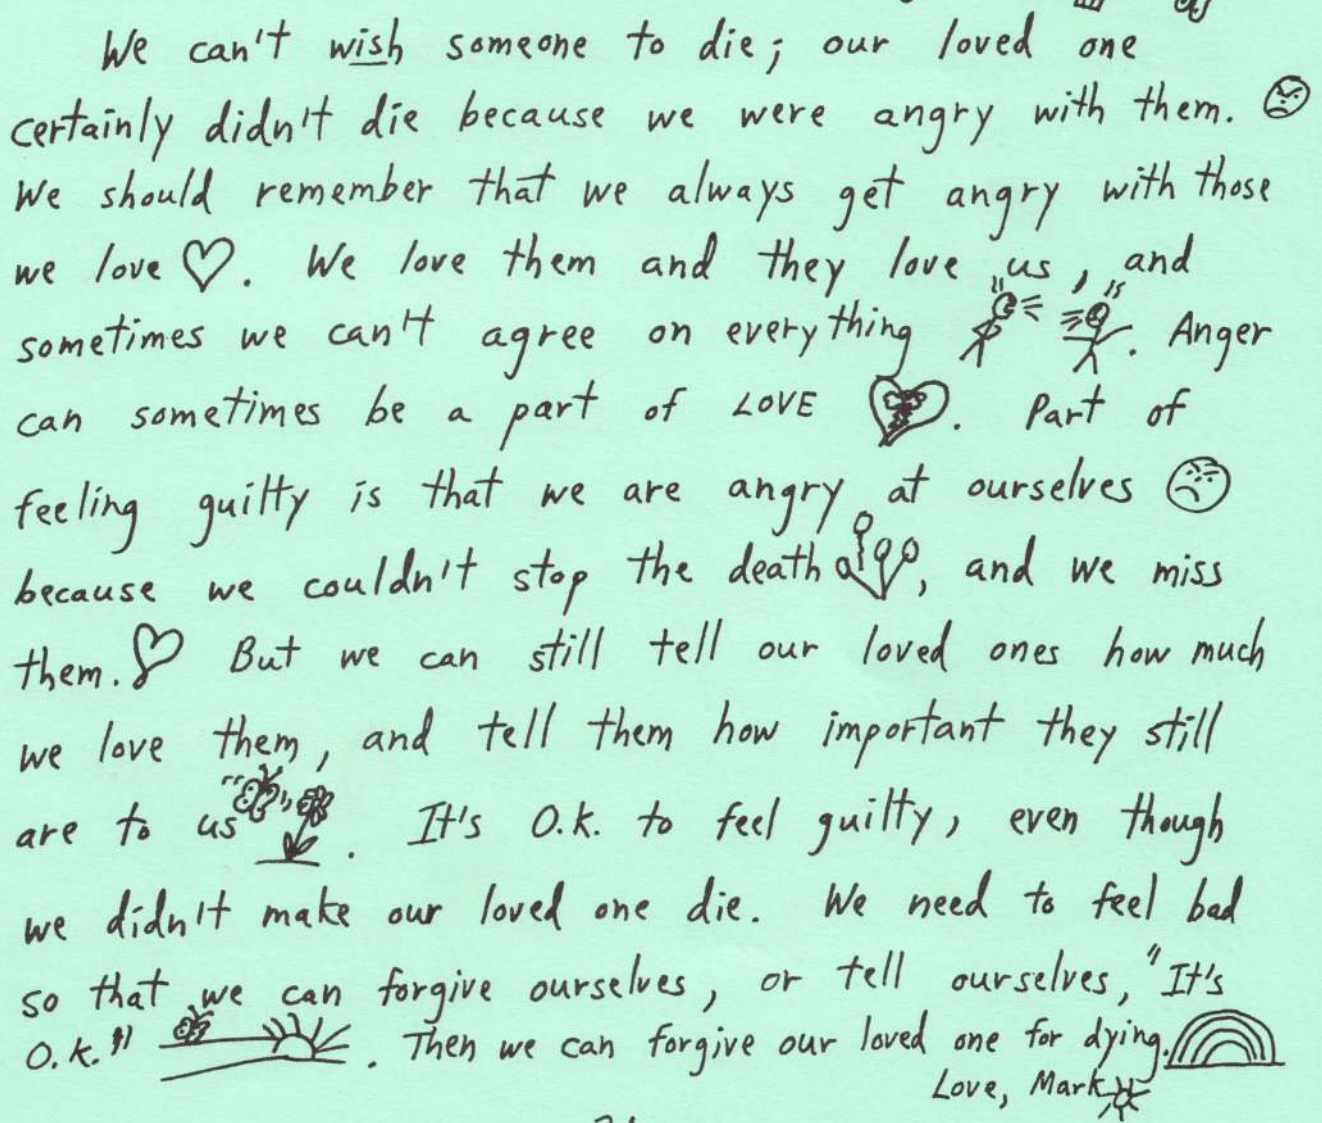 We can't wish someone to die; our loved one
certainly didn't die because we were angry with them.
We should remember that we always get angry with those
we love. We love them and they love us, and
sometimes we can't agree on everything. Anger
can sometimes be a part of LOVE. Part of
feeling guilty is that we are angry at ourselves
because we couldn't stop the death, and we miss
them. But we can still tell our loved ones how much
we love them, and tell them how important they still
are to us. It's O.K. to feel guilty, even though
we didn't make our loved one die. We need to feel bad
so that we can forgive ourselves, or tell ourselves, "It's
O.K.!" . Then we can forgive our loved one for dying.
Love, Mark